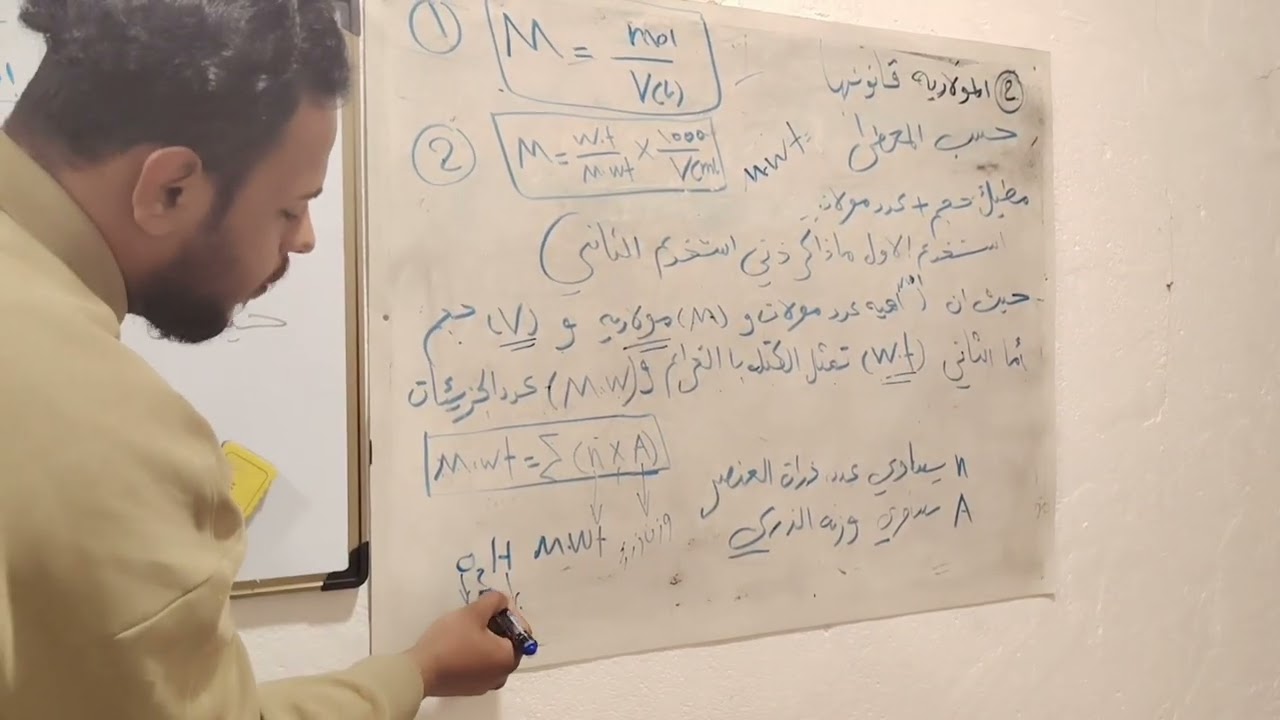 ① M = mol / V(L)
② المولارية قانونها
② M = w.t / M.wt × 1000 / V(mL)
M.wt=
حسب المعطى
حجم + عدد مولات
استخدم الاول ماذكر ذني استخدم الثاني)
حيث ان هيه عدد مولات و (M) مولاريه و (V) حجم
أما الثاني (w.t) تمثل الكتله با الغرام و (M.w) عدد الجزيئات
M.wt = Σ (n × A)
n يساوي عدد ذرات العنصر
A وزنه الذري
M.wt
O₂H